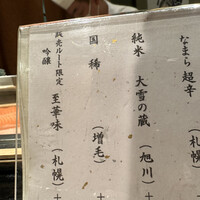 なまら超辛
(札幌)
純米 大雪の蔵
(旭川)
国稀
(増毛)
販売ルート限定
吟醸 至華味
(札幌)